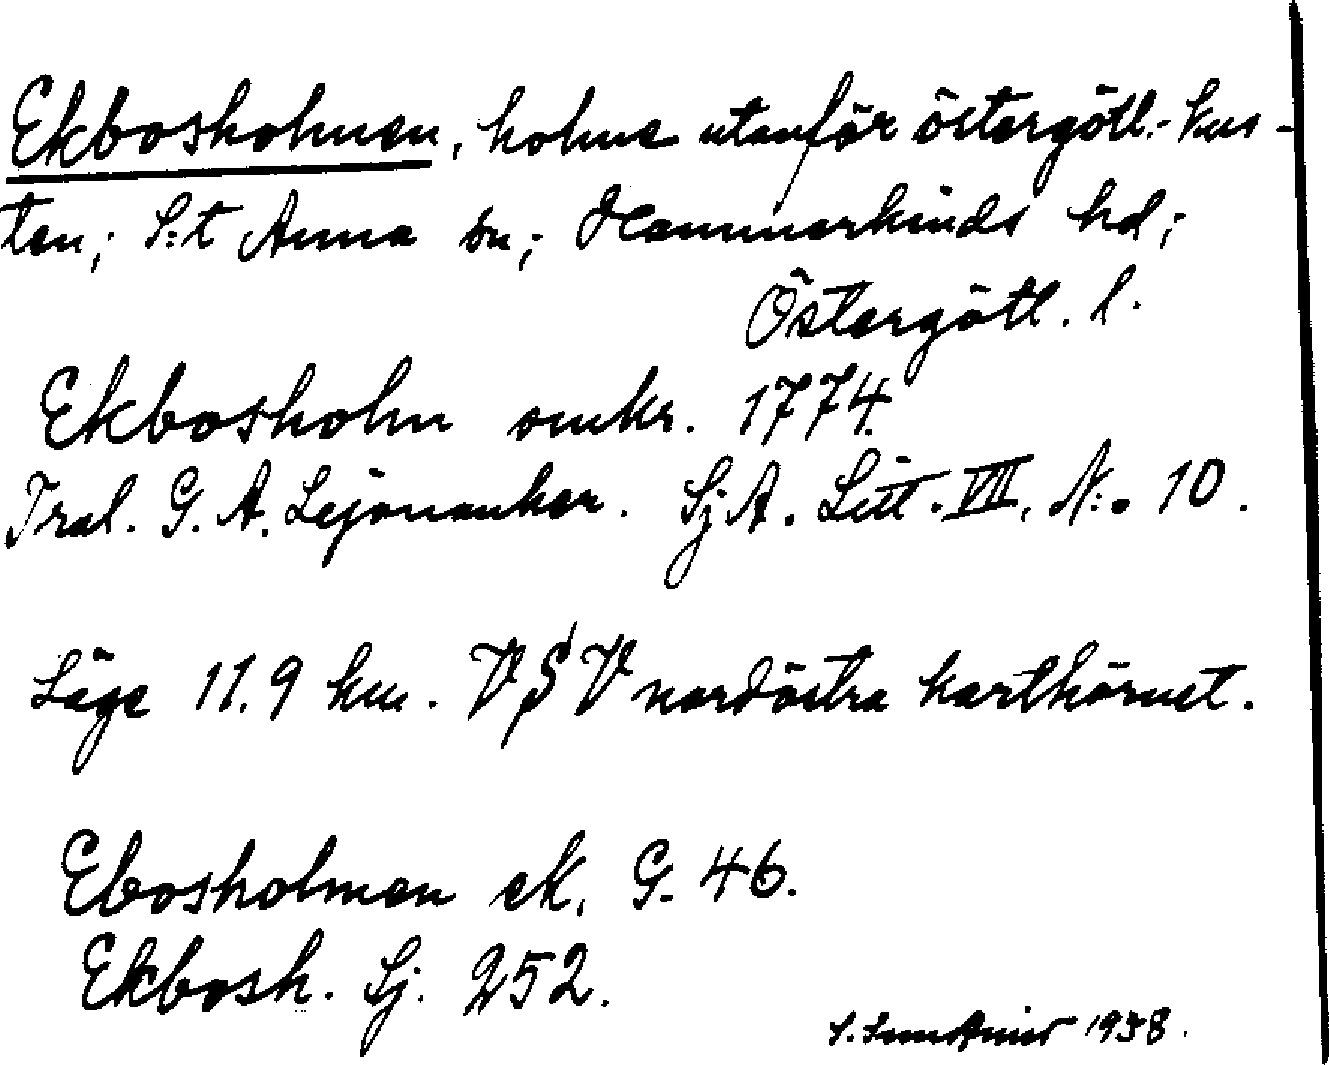 Ekbosholmen, holme utanför östergötl.- kus-
ten; S:t Anna sn; Hammarkinds hd;
Östergötl. l.
Ekbosholm omkr. 1774.
Tral. G. A. Lejonanker. Sj.A. Litt. VIII, N:o 10.
Läge 11.9 km. V S V nordöstra karthörnet.
Ebosholmen ek. G. 46.
Ekbosh. Sj. 252.
1938.